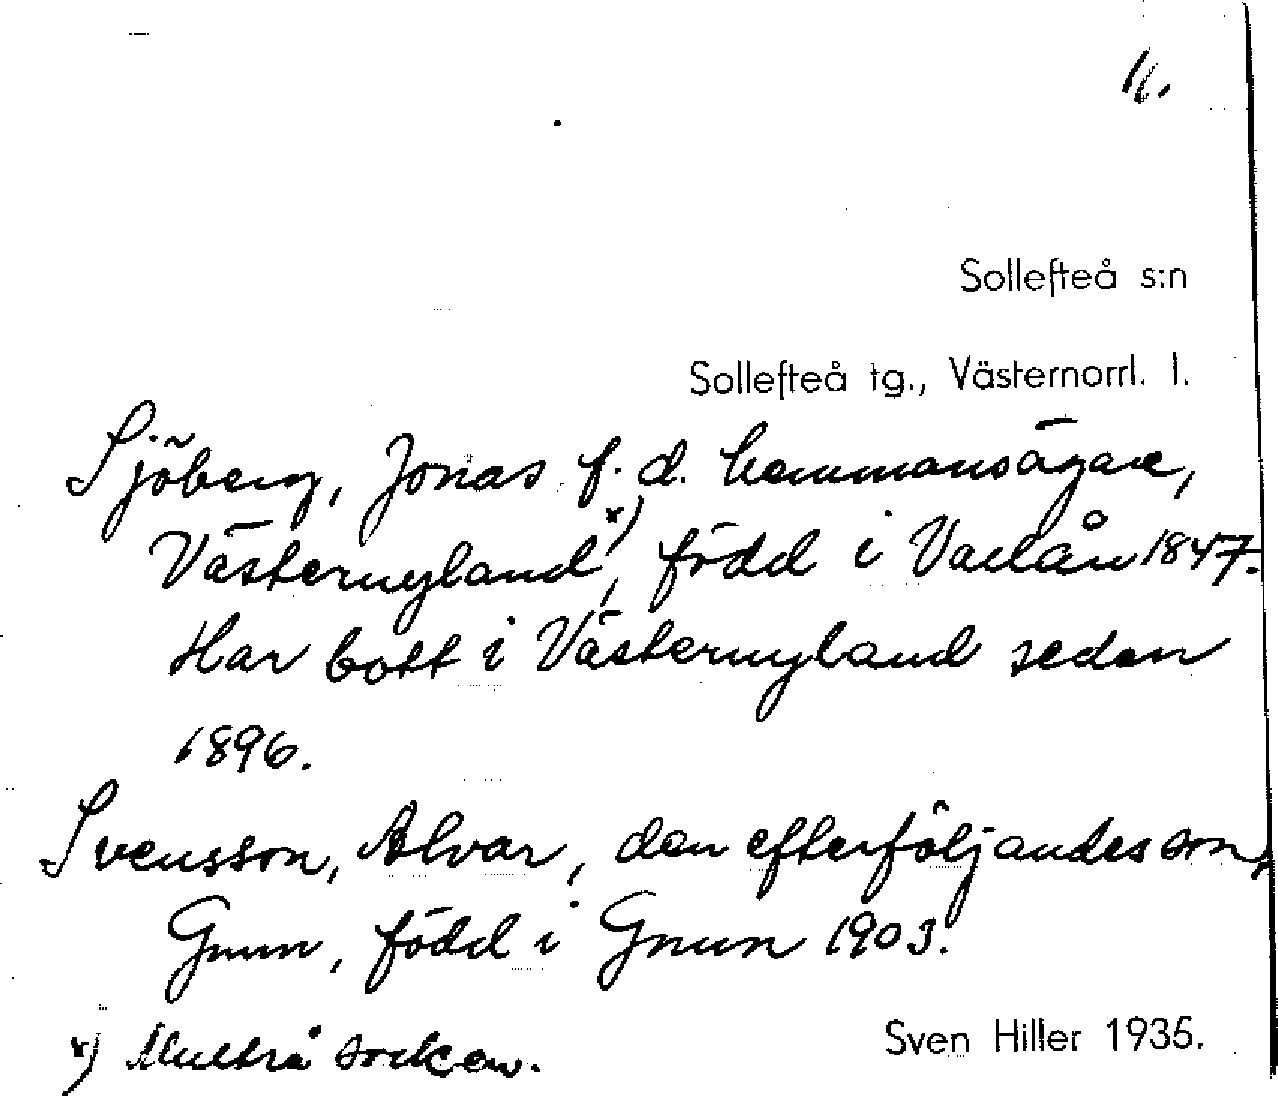 16.
Sollefteå s:n
Sollefteå tg., Västernorrl. l.
Sjöberg, Jonas f. d. hemmansägare,
Västernyland x), född i Vallån 1847.
Har bott i Västernyland sedan
1896.
Svensson, Alvar, den efterföljandes son,
Gnun, född i Gnun 1903.
x) Multrå socken.
Sven Hiller 1935.